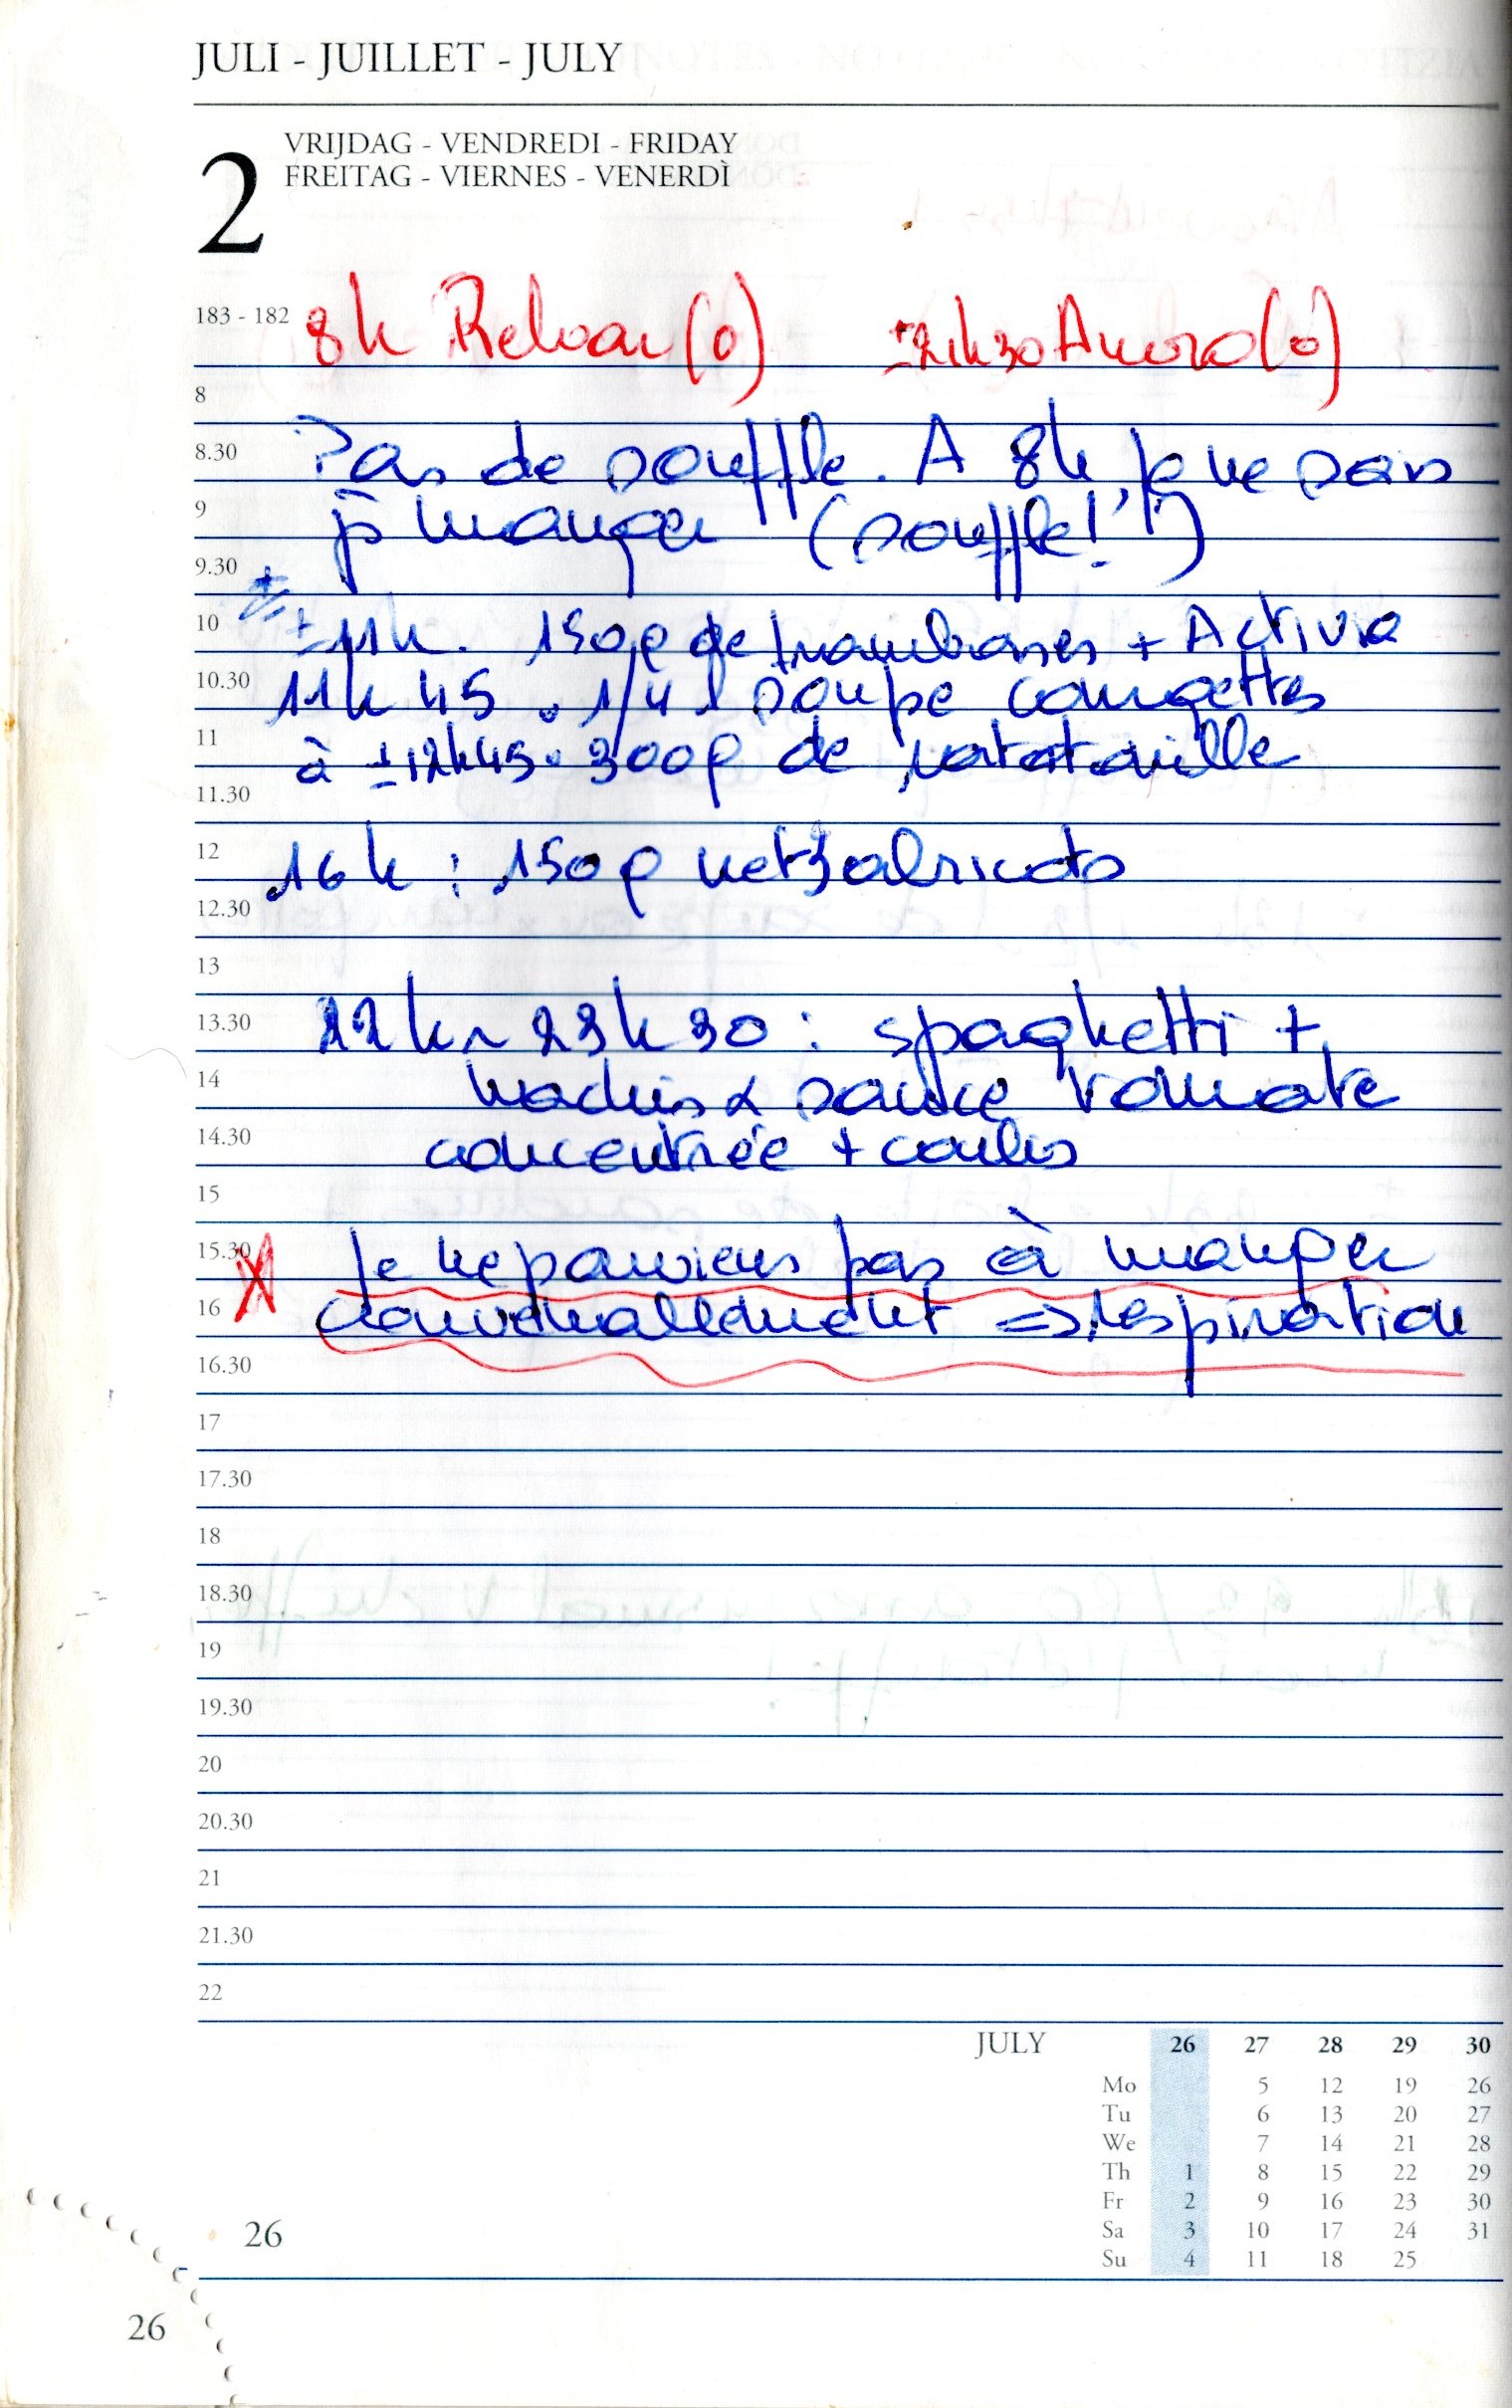 JULI - JUILLET - JULY
2
VRIJDAG - VENDREDI - FRIDAY
FREITAG - VIERNES - VENERDÌ
183 - 182
8h Relvar (0) ±21h30 Amoro(0)
8
8.30
Pas de souffle. A 8h, je ne sais
9
p manger (souffle!')
9.30
10
± 11h. 150g de framboises + Activia
10.30
11h45. 1/4 l soupe courgettes
11
à ±12h45. 300g de ratatouille
11.30
12
16h : 150g net 3 abricots
12.30
13
13.30
22h ~ 23h30 : spaghetti +
14
hachis & sauce tomate
14.30
concentrée + coulis
15
15.30
Je ne parviens pas à manger
16
convenablement => respiration
16.30
17
17.30
18
18.30
19
19.30
20
20.30
21
21.30
22
JULY 26 27 28 29 30
Mo 5 12 19 26
Tu 6 13 20 27
We 7 14 21 28
Th 1 8 15 22 29
Fr 2 9 16 23 30
Sa 3 10 17 24 31
Su 4 11 18 25
26
26